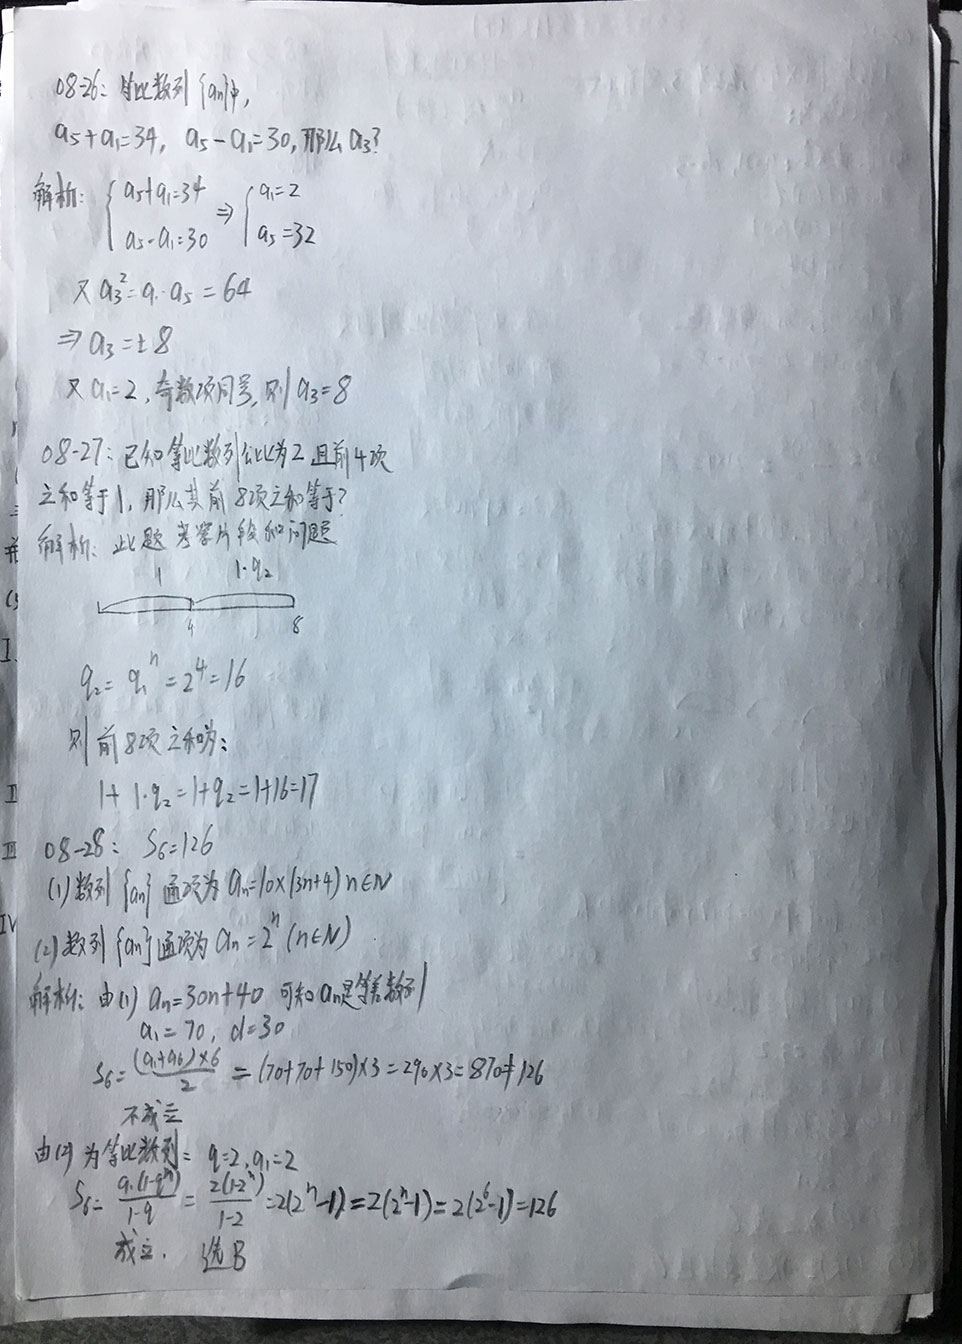 08-26: 等比数列{an}中,
a5+a1=34, a5-a1=30, 那么a3?
解析: { a5+a1=34 ⇒ { a1=2
a5-a1=30 a5=32
又a3²=a1·a5=64
⇒a3=±8
又a1=2, 奇数项同号, 则a3=8
08-27: 已知等比数列公比为2且前4项
之和等于1, 那么其前8项之和等于?
解析: 此题考察片段和问题
1 1·q2
4 8
q2=q1^n=2^4=16
则前8项之和为:
1+1·q2=1+q2=1+16=17
08-28: S6=126
(1)数列{an}通项为an=10×(3n+4) n∈N
(2)数列{an}通项为an=2^n (n∈N)
解析: 由(1) an=30n+40 可知an是等差数列
a1=70, d=30
S6=(a1+a6)×6/2=(70+70+150)×3=290×3=870≠126
不成立
由(2)为等比数列: q=2, a1=2
S6=a1(1-q^n)/1-q=2(1-2^n)/1-2=2(2^n-1)=2(2^n-1)=2(2^6-1)=126
成立. 选B